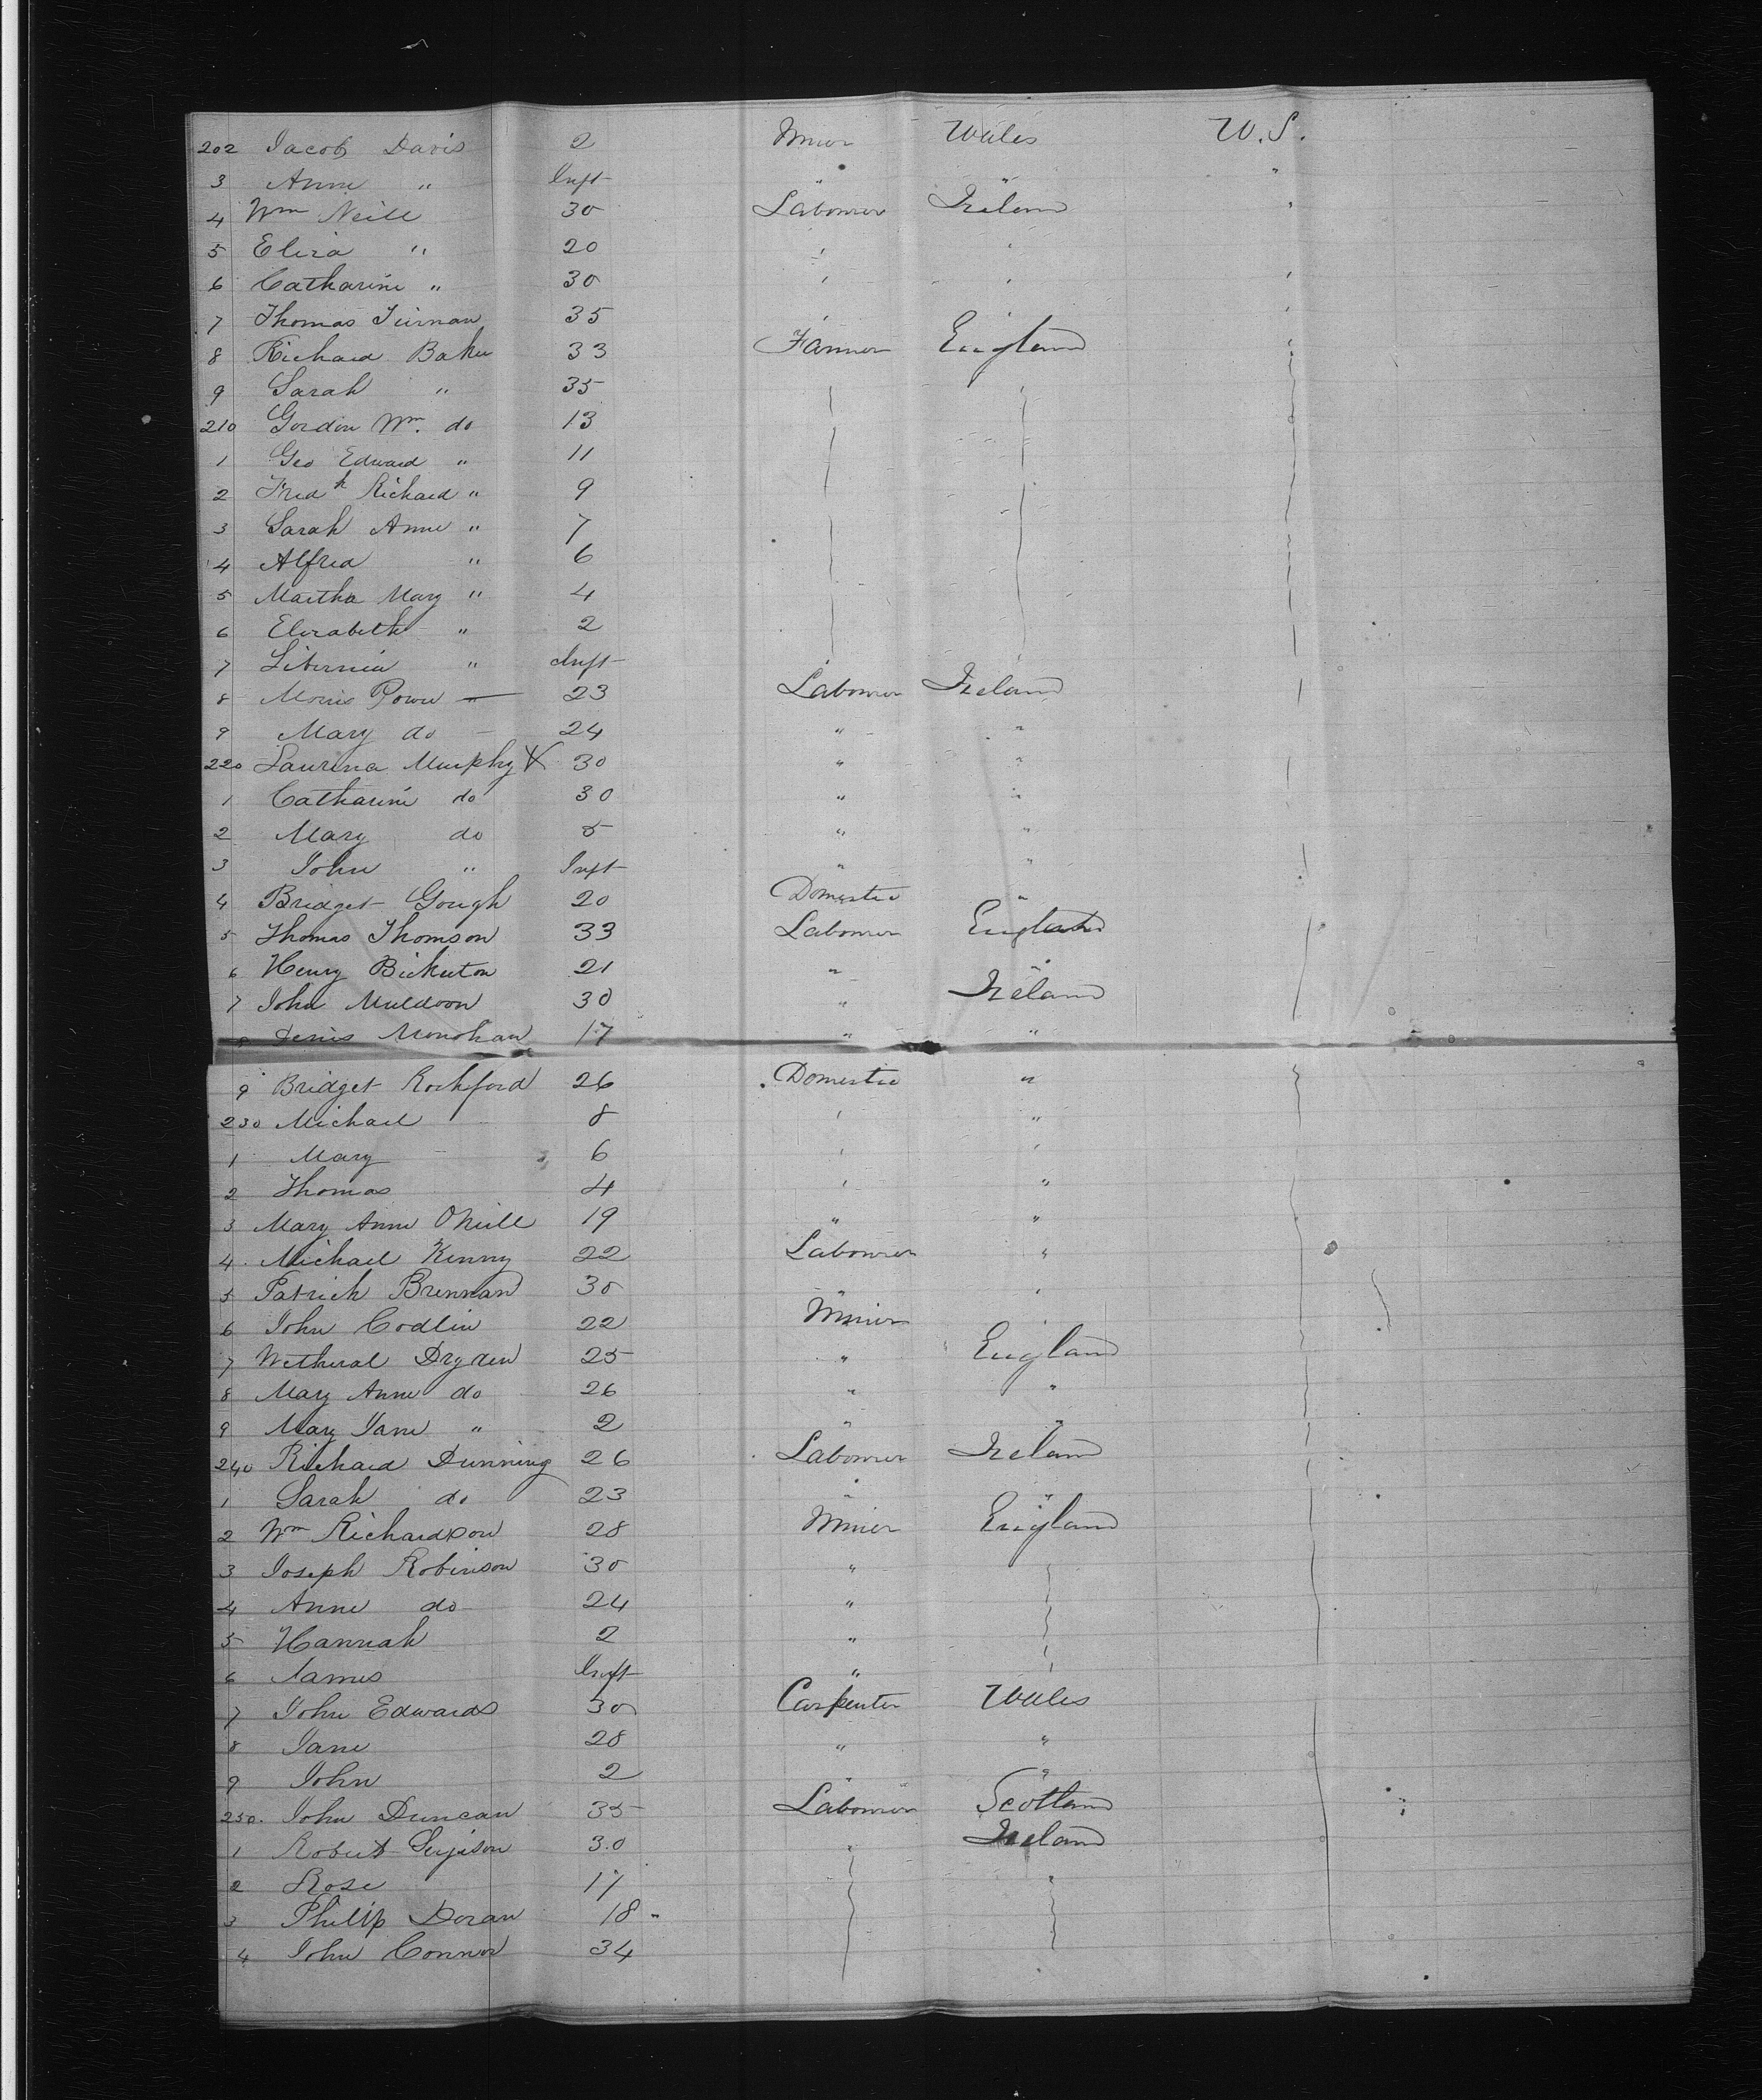 202 Jacob Davis 2 Miner Wales U.S.
3 Anne " Inft " " "
4 Wm Neill 30 Labourer Ireland "
5 Eliza " 20 " "
6 Catharine " 30 " " "
7 Thomas Tiernan 35 " " "
8 Richard Baker 33 Farmer England "
9 Sarah " 35
210 Gordon Wm. do 13
1 Geo Edward " 11
2 Fredk Richard " 9
3 Sarah Anne " 7
4 Alfred " 6
5 Martha Mary " 4
6 Elizabeth " 2
7 " Inft
8 Morris Power — 23 Labourer Ireland
9 Mary do — 24 " "
220 Laurence Murphy X 30 " "
1 Catharine do 30 " "
2 Mary do 5 " "
3 John " Inft " "
4 Bridget Gough 20 Domestic "
5 Thomas Thomson 33 Labourer England
6 Henry Bickerton 21 " "
7 John Muldoon 30 " Ireland
8 Denis Monohan 17 " "
9 Bridget Rochford 26 Domestic "
230 Michael 8 " "
1 Mary 6 " "
2 Thomas 4 " "
3 Mary Anne ONeill 19 " "
4 Michael Kenny 22 Labourer "
5 Patrick Brennan 30 " "
6 John Codlin 22 Miner "
7 Wetheral Dryden 25 " England
8 Mary Anne do 26 " "
9 Mary Jane " 2 " "
240 Richard Dunning 26 Labourer Ireland
1 Sarah do 23 " "
2 Wm Richardson 28 Miner England
3 Joseph Robinson 30 "
4 Anne do 24 "
5 Hannah 2 "
6 James Inft "
7 John Edwards 30 Carpenter Wales
8 Jane 28 " "
9 John 2 " "
250. John Duncan 35 Labourer Scotland
1 Robert 30 " Ireland
2 Rose 17 "
3 Philip Doran 18
4 John Connor 34